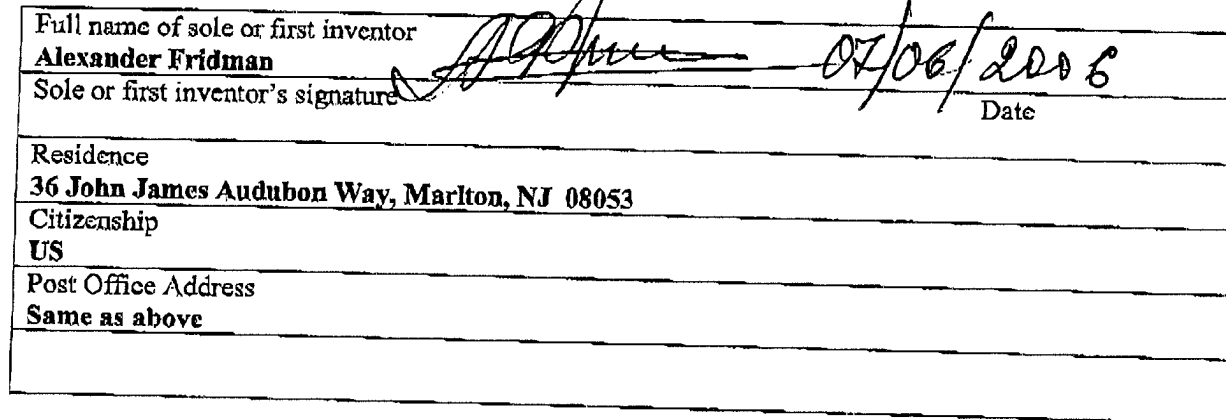 Full name of sole or first inventor
Alexander Fridman
07/06/2006
Sole or first inventor's signature
Date
Residence
36 John James Audubon Way, Marlton, NJ 08053
Citizenship
US
Post Office Address
Same as above